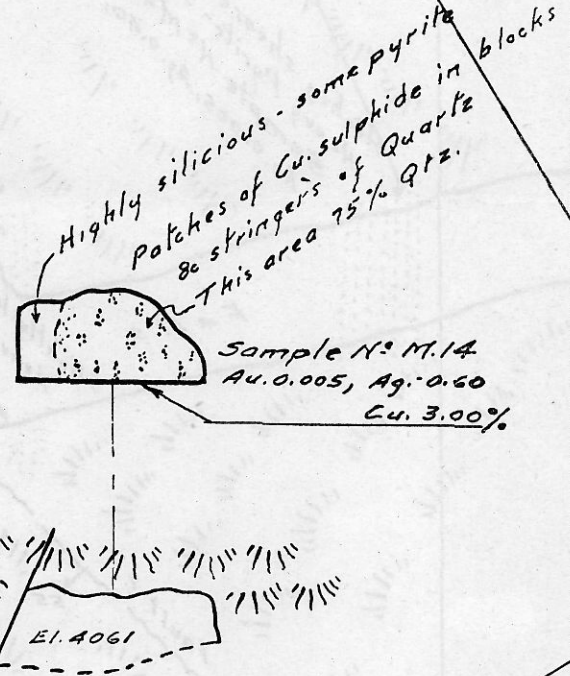 Highly silicious - some pyrite
Patches of Cu. sulphide in blocks
& stringers of Quartz
This area 75% Qtz.
Sample Nº M.14
Au. 0.005, Ag. 0.60
Cu. 3.00%
El. 4061